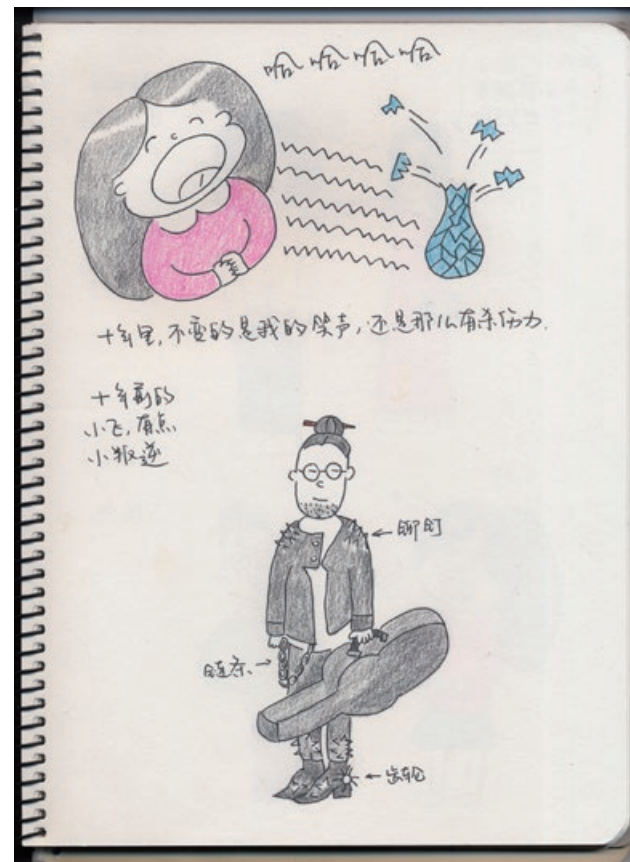 哈哈哈哈
十年里,不变的是我的笑声,还是那么有杀伤力.
十年前的
小飞,有点
小叛逆
←铆钉
链条→
←齿轮